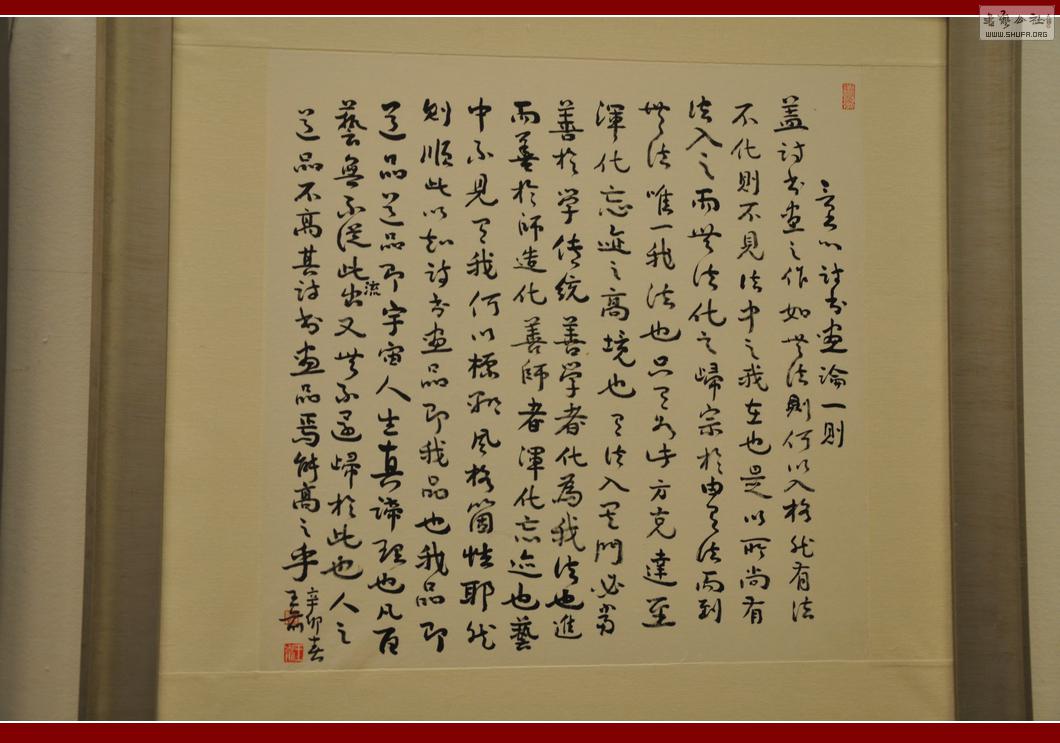 言以詩書画論一則
盖詩书画之作如無法則何以入格然有法
不化則不見法中之我在也是以所尚有
法入之而無法化之歸宗於由有法而到
無法唯一我法也只有如此方克達至
渾化忘迹之高境也有法入其門必當
善於学传統善学者化為我法也進
而善於師造化善師者渾化忘迹也藝
中不見有我何以標熙風格箇性耶然
则順此以知詩书画品即我品也我品即
道品道品即宇宙人生真諦理也凡百
藝無不從此流出又無不還歸於此也人之
道品不高其詩书画品焉能高之乎
辛卯春
書艺公社
WWW.SHUFA.ORG